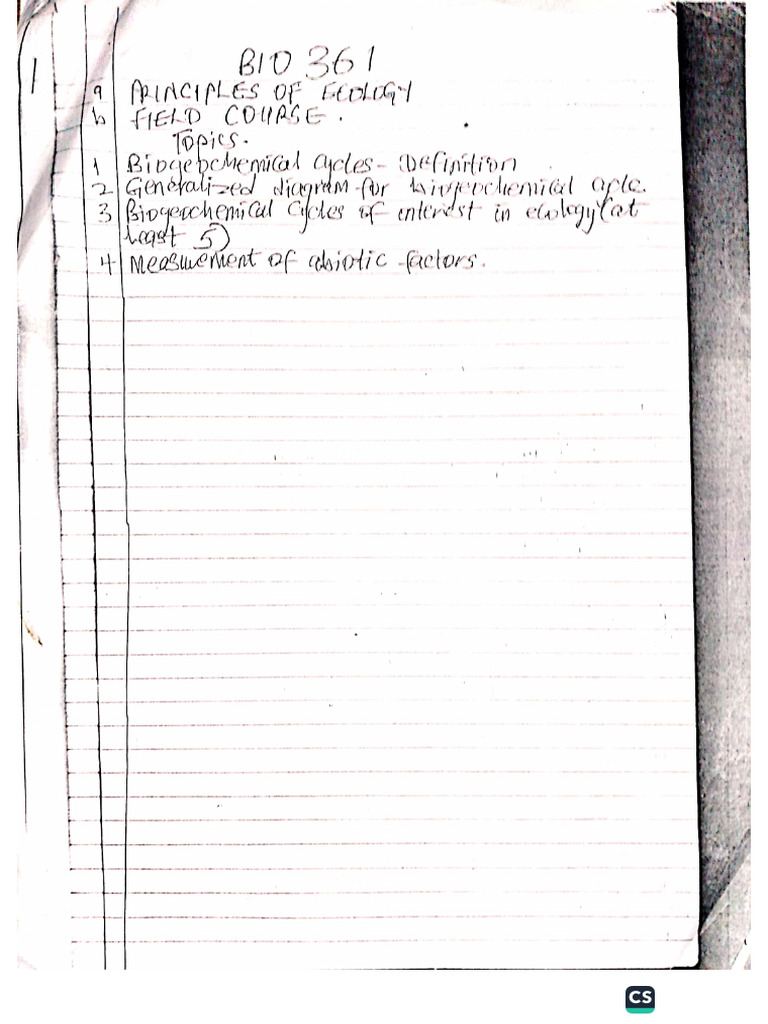 1
BIO 361
a PRINCIPLES OF ECOLOGY
b FIELD COURSE.
Topics.
1 Biogeochemical Cycles - Definition
2 Generalized diagram for biogeochemical cycle.
3 Biogeochemical Cycles of interest in ecology (at
least 5)
4 Measurement of abiotic factors.
CS